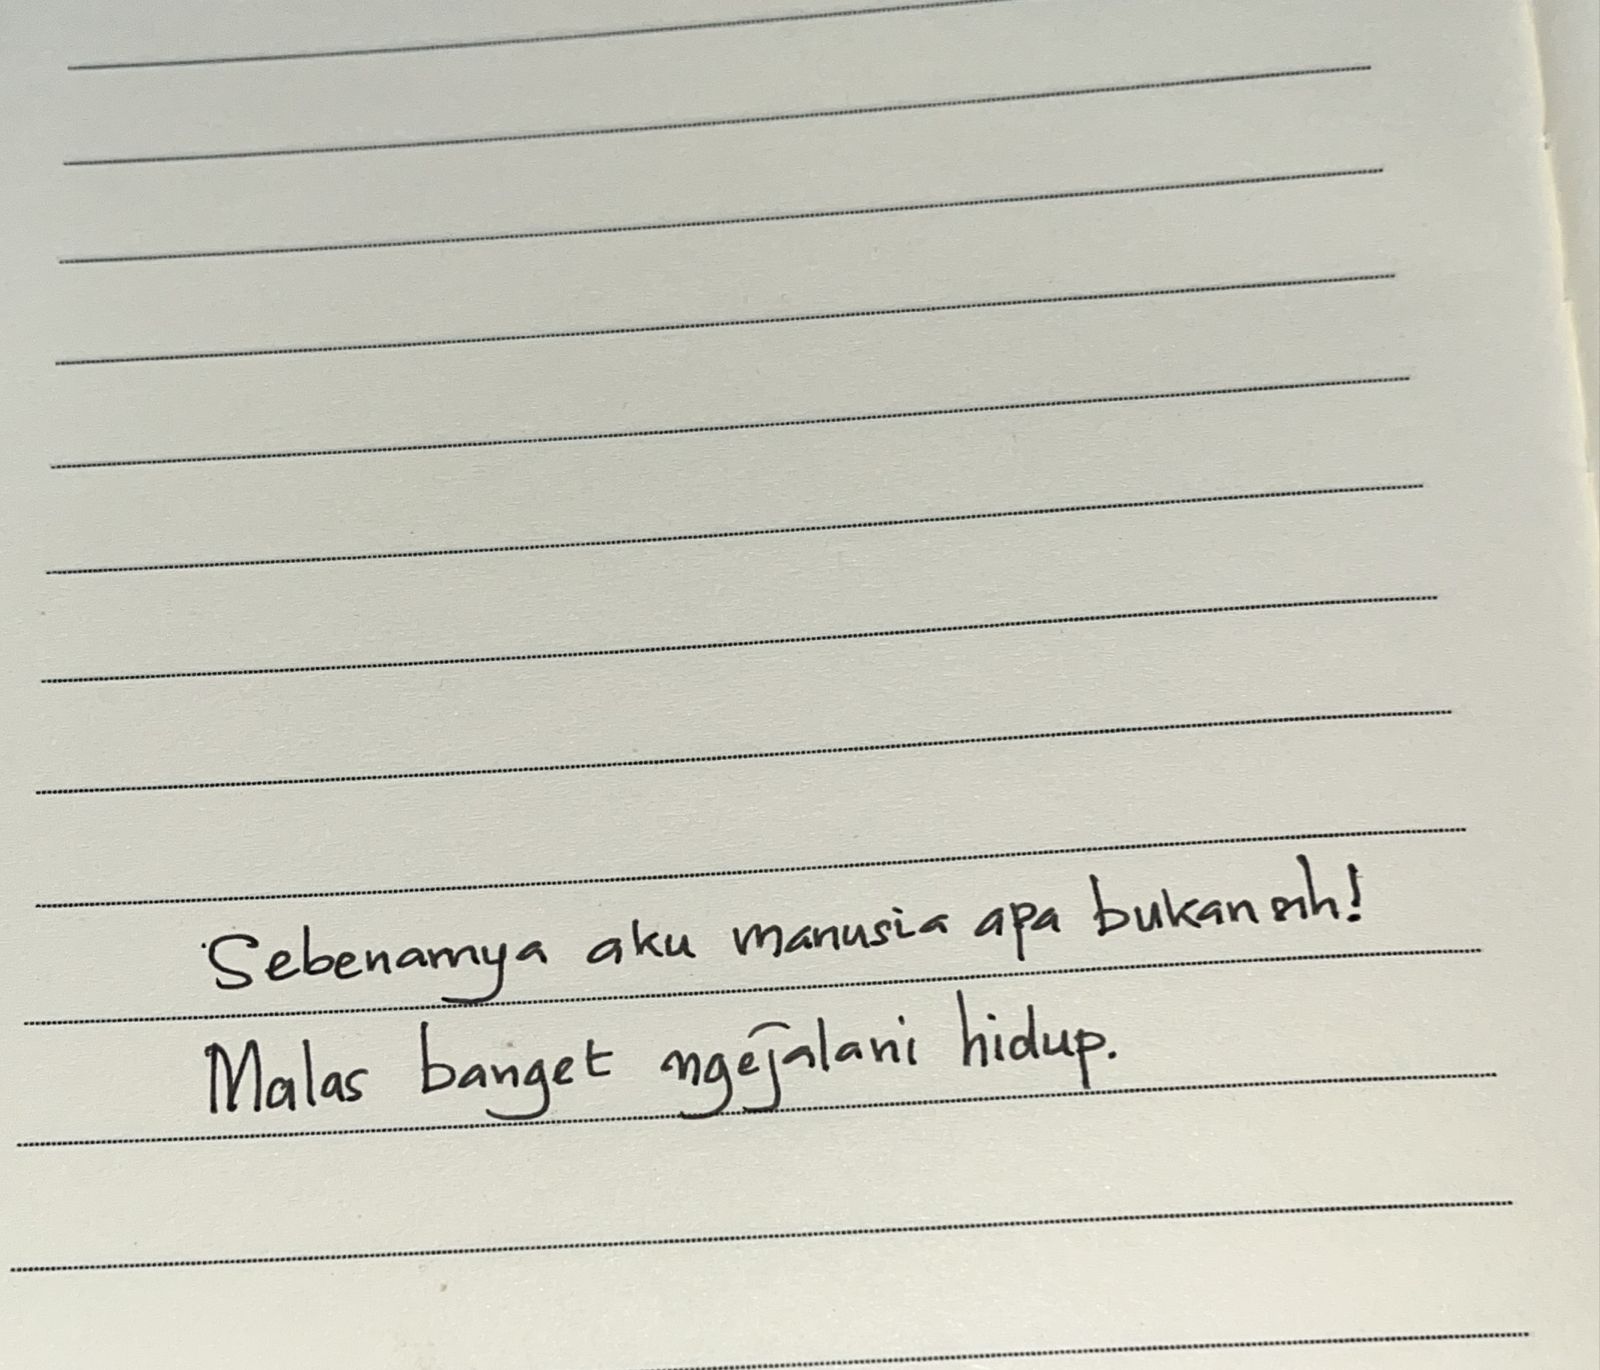 Sebenarnya aku manusia apa bukan sih!
Malas banget ngejalani hidup.